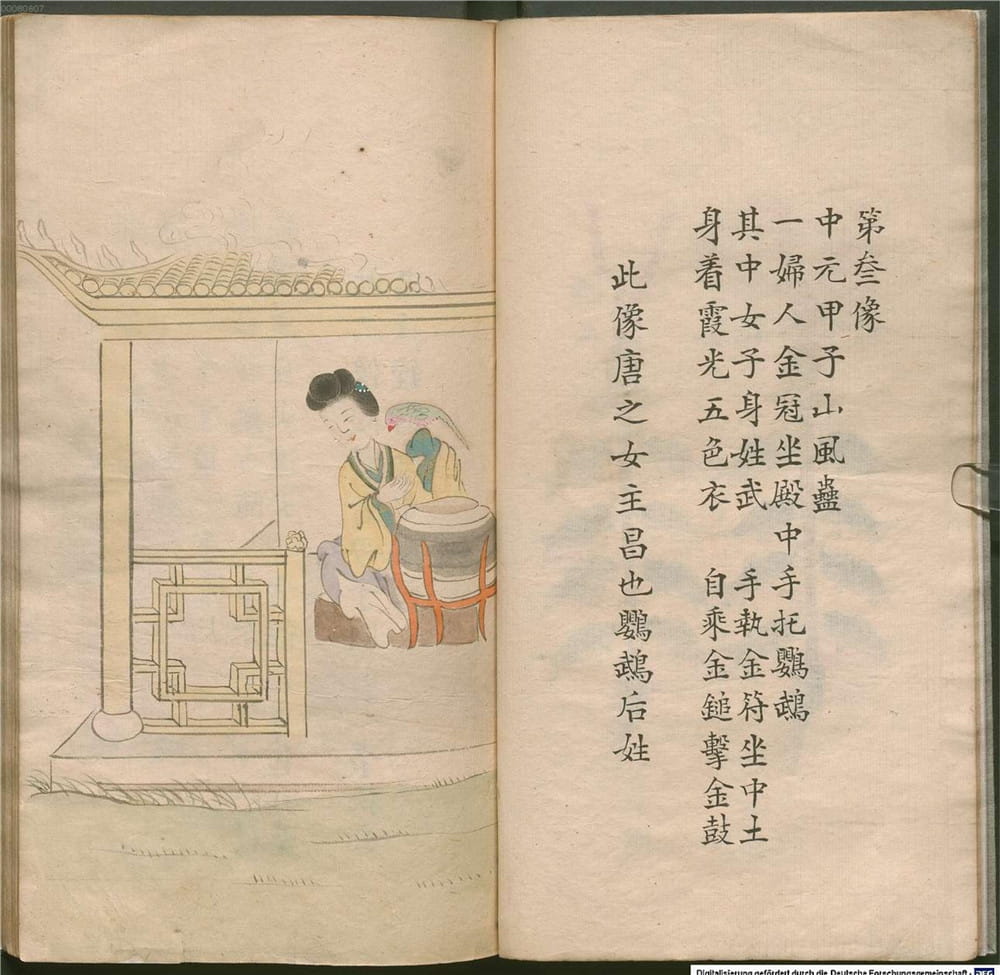 00080807
第叁像
中元甲子山風蠱
一婦人金冠坐殿中手托鸚鵡
其中女子身姓武 手執金符坐中土
身着霞光五色衣 自乘金鎚擊金鼓
此像唐之女主昌也鸚鵡后姓
Digitalisierung gefördert durch die Deutsche Forschungsgemeinschaft - DFG